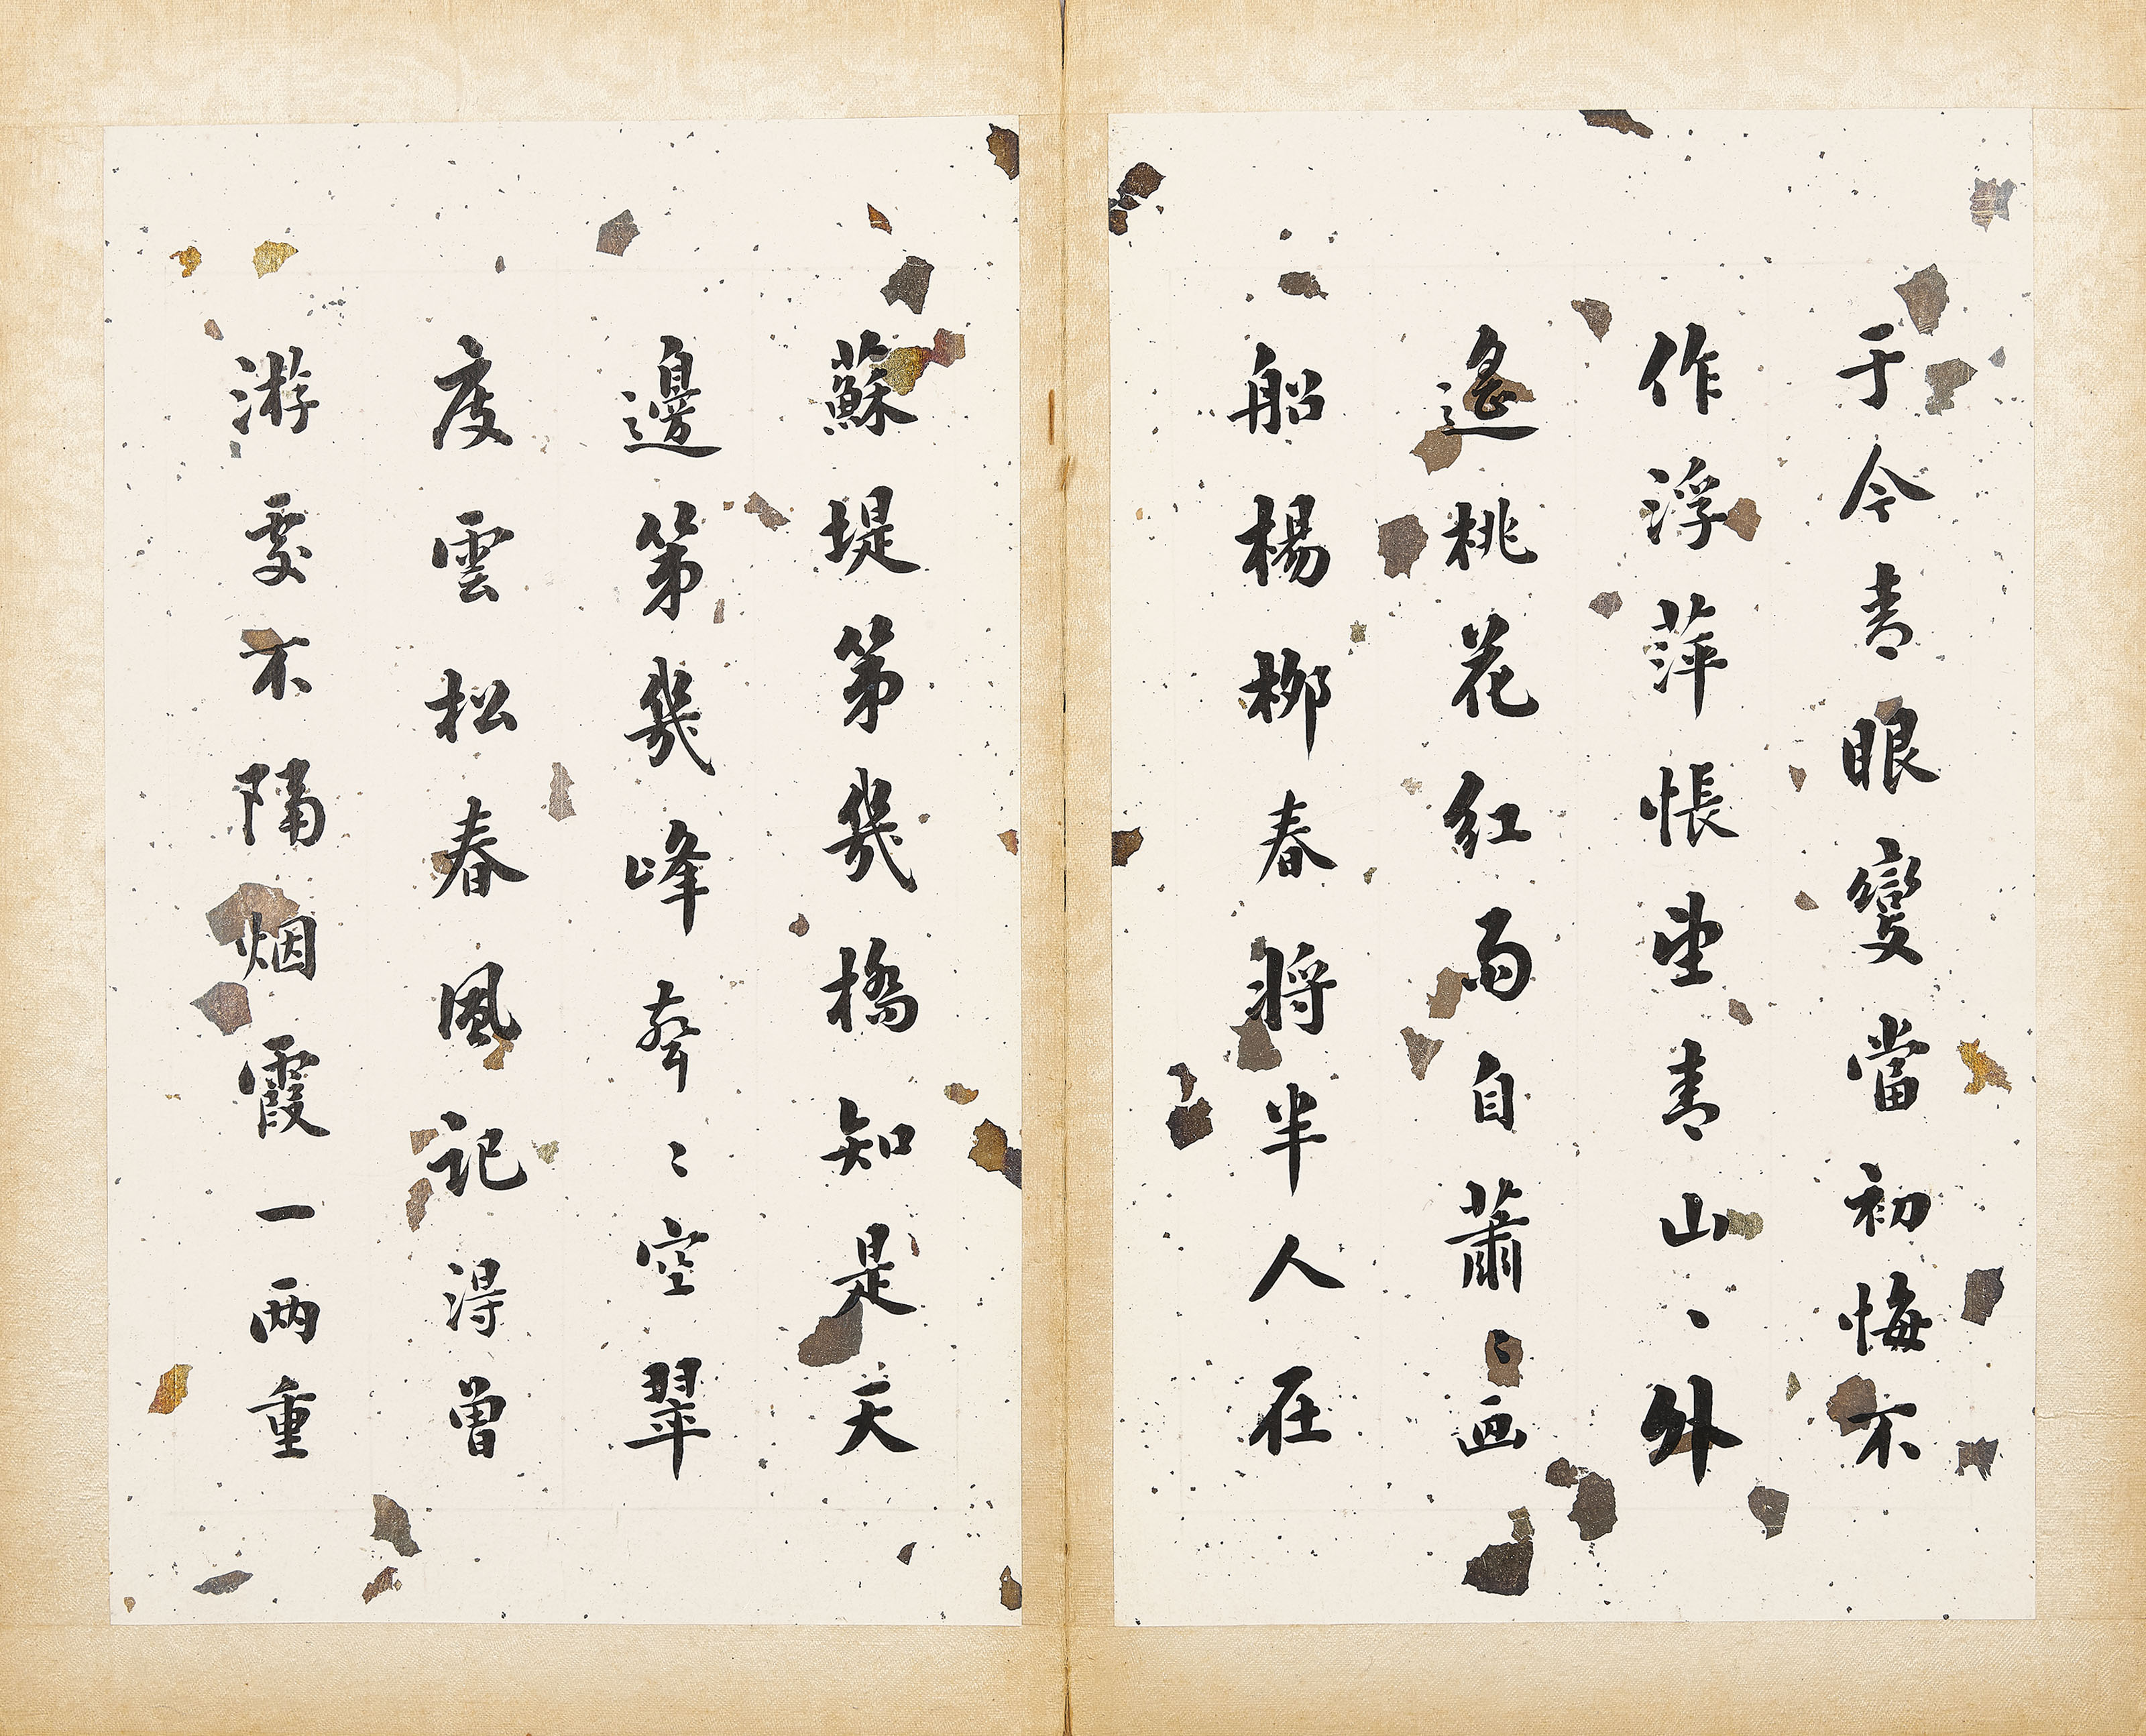 于今青眼變當初悔不
作浮萍悵望青山〻外
遙桃花紅雨自蕭〻画
船楊柳春將半人在
蘇堤第幾橋知是天
邊第幾峰奇〻空翠
度雲松春風記得曽
游處不隔烟霞一两重